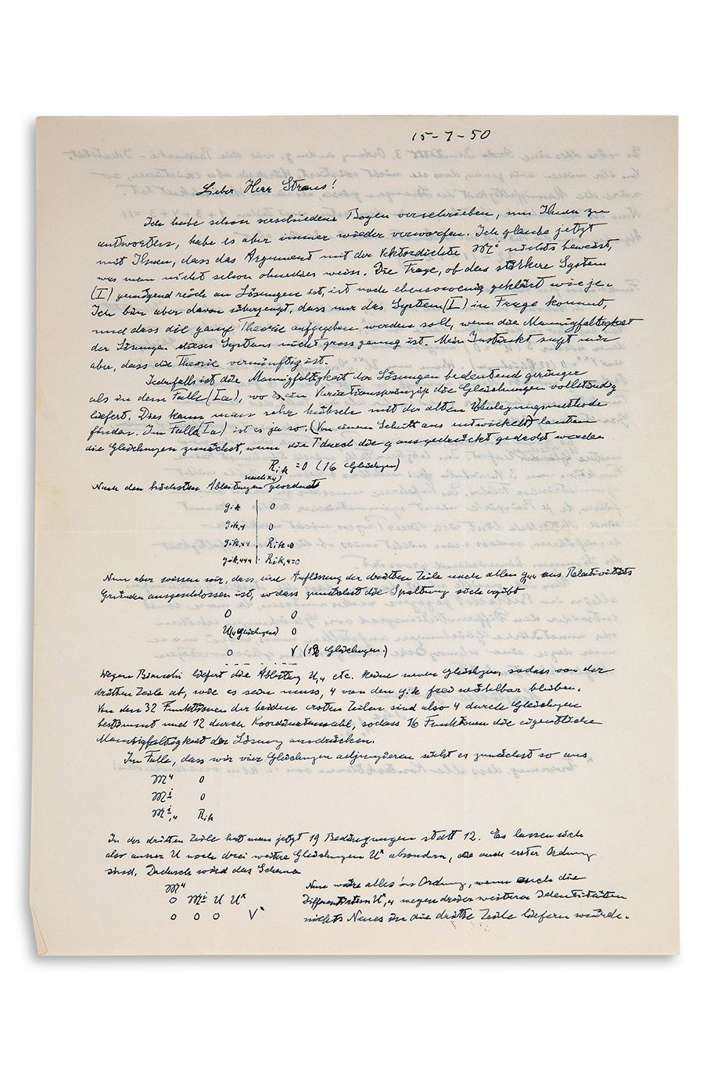 15-7-50
Lieber Herr Straus!
Ich habe schon verschiedene Bogen verschrieben, um Ihnen zu
antworten, habe es aber immer wieder verworfen. Ich glaube jetzt
mit Ihnen, dass das Argument mit der Vektordichte 𝔐ⁱ nichts beweist,
was man nicht schon ohnedies weiss. Die Frage, ob das stärkere System
(I) genügend reich an Lösungen ist, ist noch ebensowenig geklärt wie je.
Ich bin aber davon überzeugt, dass nur das System (I) in Frage kommt,
und dass die ganze Theorie aufgegeben werden soll, wenn die Mannigfaltigkeit
der Lösungen dieses Systems nicht gross genug ist. Mein Instinkt sagt mir
aber, dass die Theorie vernünftig ist.
Jedenfalls ist die Mannigfaltigkeit der Lösungen bedeutend geringer
als in dem Falle (Ia), wo ein Variationsprinzip die Gleichungen vollständig
liefert. Dies kann man sehr hübsch mit der alten Überlegungsmethode
finden. Im Falle (Ia) ist es ja so. (Von einem Schnitt aus entwickelt) lauten
die Gleichungen zunächst, wenn die Γ durch die g ausgedrückt gedacht werden
R_ik = 0 (16 Gleichungen)
Nach den höchsten Ableitungen (nach x4) geordnet
g_ik | 0
g_ik,4 | 0
g_ik,44 | R_ik=0
g_ik,444 | R_ik,4=0
Nun aber wissen wir, dass eine Auflösung der dritten Zeile nach allen g_44 aus Relativitäts
Gründen ausgeschlossen ist, sodass zunächst die Spaltung sich ergibt
0 0
U(4 Gleichungen) 0
0 V (12 Gleichungen)
Wegen Bianchi liefert die Ableitung U,4 etc. keine neuen Gleichungen, sodass von der
dritten Zeile ab, wie es sein muss, 4 von den g_ik frei wählbar bleiben.
Von den 32 Funktionen der beiden ersten Zeilen sind also 4 durch Gleichungen
bestimmt und 12 durch Koordinatenwahl, sodass 16 Funktionen die eigentliche
Mannigfaltigkeit der Lösung ausdrücken.
Im Falle, dass wir vier Gleichungen adjungieren sieht es zunächst so aus
𝔐⁴ 0
𝔐ⁱ 0
𝔐ⁱ,4 R_ik
In der dritten Zeile hat man jetzt 19 Bedingungen statt 12. Es lassen sich
also ausser U noch drei weitere Gleichungen U* absondern, die auch erster Ordnung
sind. Dadurch wird das Schema
𝔐⁴
0 𝔐ⁱ U U*
0 0 0 V*
Nun wäre alles in Ordnung, wenn auch die
Differentiation U*,4 wegen dreier weiterer Identitäten
nichts Neues in die dritte Zeile liefern würde.